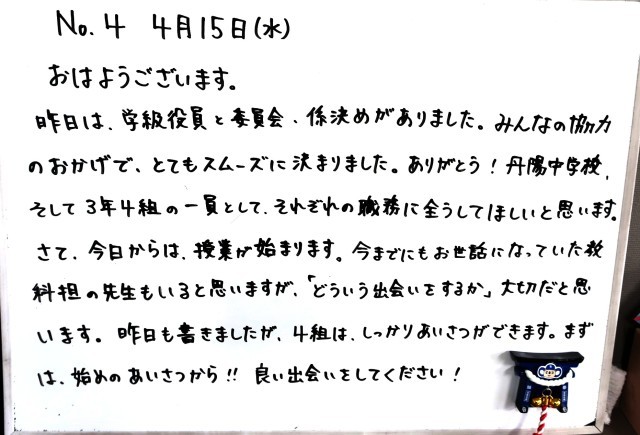 No.4 4月15日(水)
おはようございます。
昨日は、学級役員と委員会、係決めがありました。みんなの協力
のおかげで、とてもスムーズに決まりました。ありがとう!丹陽中学校、
そして3年4組の一員として、それぞれの職務に全うしてほしいと思います。
さて、今日からは、授業が始まります。今までにもお世話になっていた教
科担の先生もいると思いますが、「どういう出会いをするか」大切だと思
います。昨日も書きましたが、4組は、しっかりあいさつができます。まず
は、始めのあいさつから!!良い出会いをしてください!